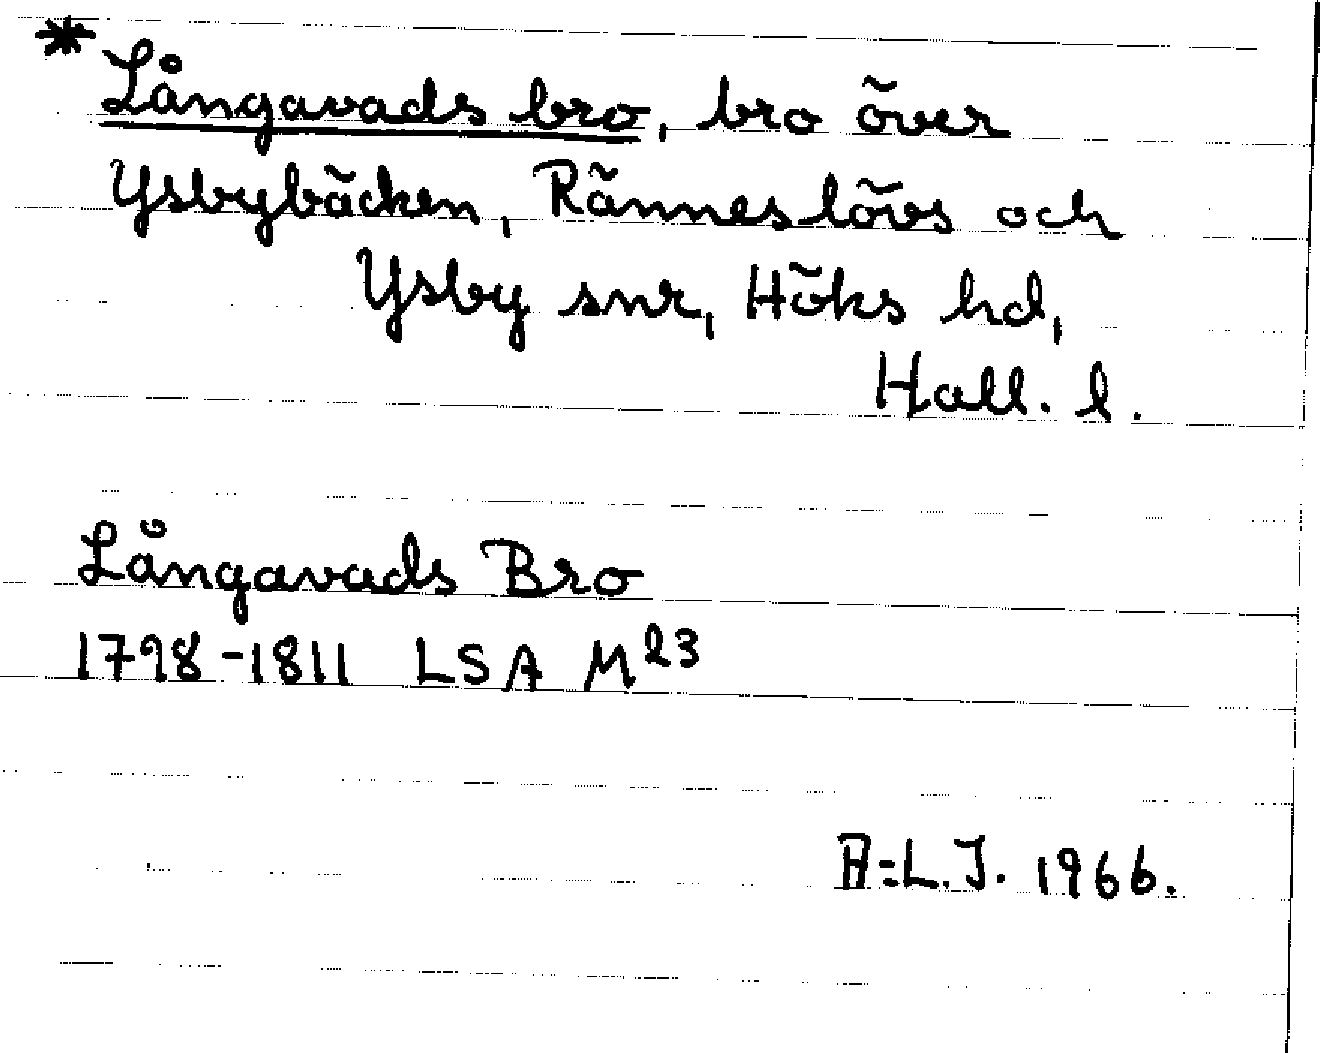 * Långavads bro, bro över
Ysbybäcken, Ränneslövs och
Ysby snr, Höks hd,
Hall. l.
Långavads Bro
1798-1811 LSA M23
A-L.J. 1966.